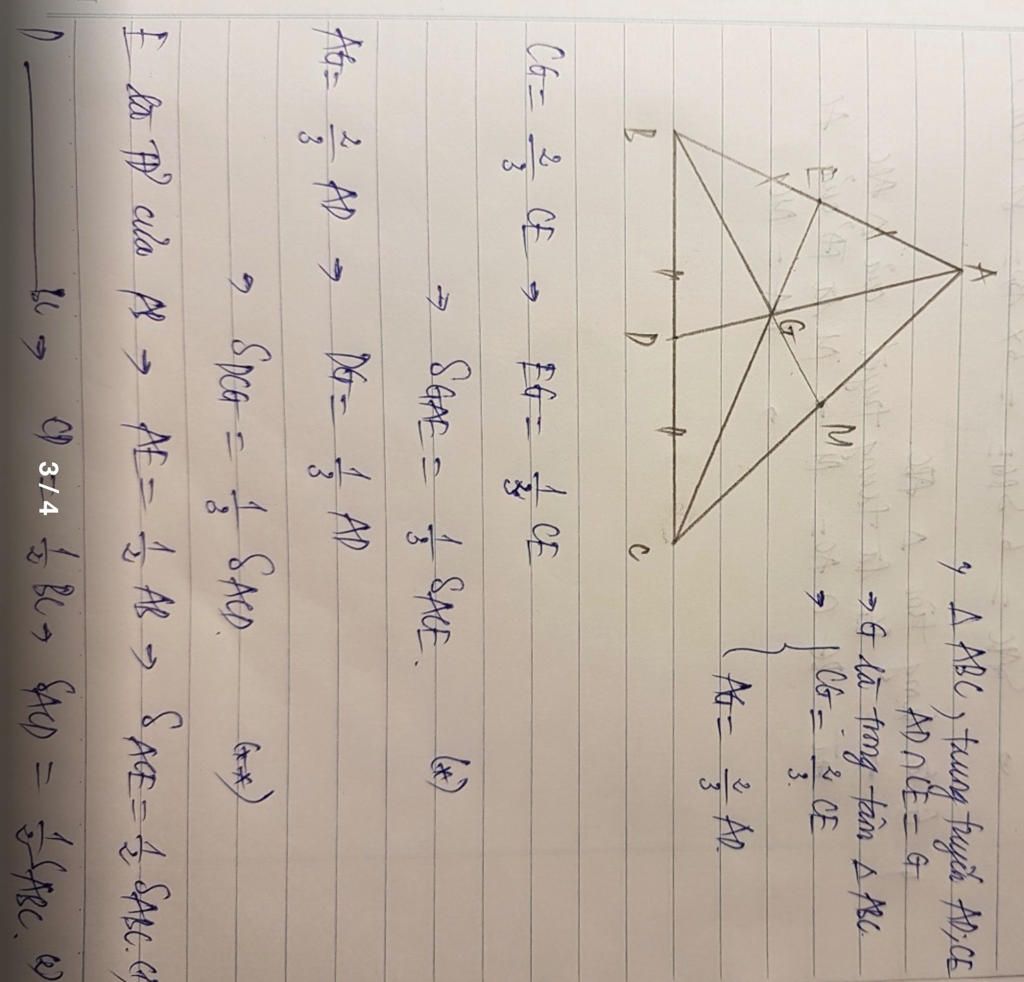 → Δ ABC, trung tuyến AD, CE
AD ∩ CE = G
→ G là trọng tâm Δ ABC.
→ { CG = 2/3 CE
AG = 2/3 AD.
A
E
M
G
B
D
C
CG = 2/3 CE → EG = 1/3 CE
→ SGAE = 1/3 SACE. (*)
AG = 2/3 AD → DG = 1/3 AD
→ SDCG = 1/3 SACD. (**)
E là TĐ của AB → AE = 1/2 AB → SACE = 1/2 SABC. (1)
D ——— BC → CD = 1/2 BC → SACD = 1/2 SABC. (2)
3 / 4